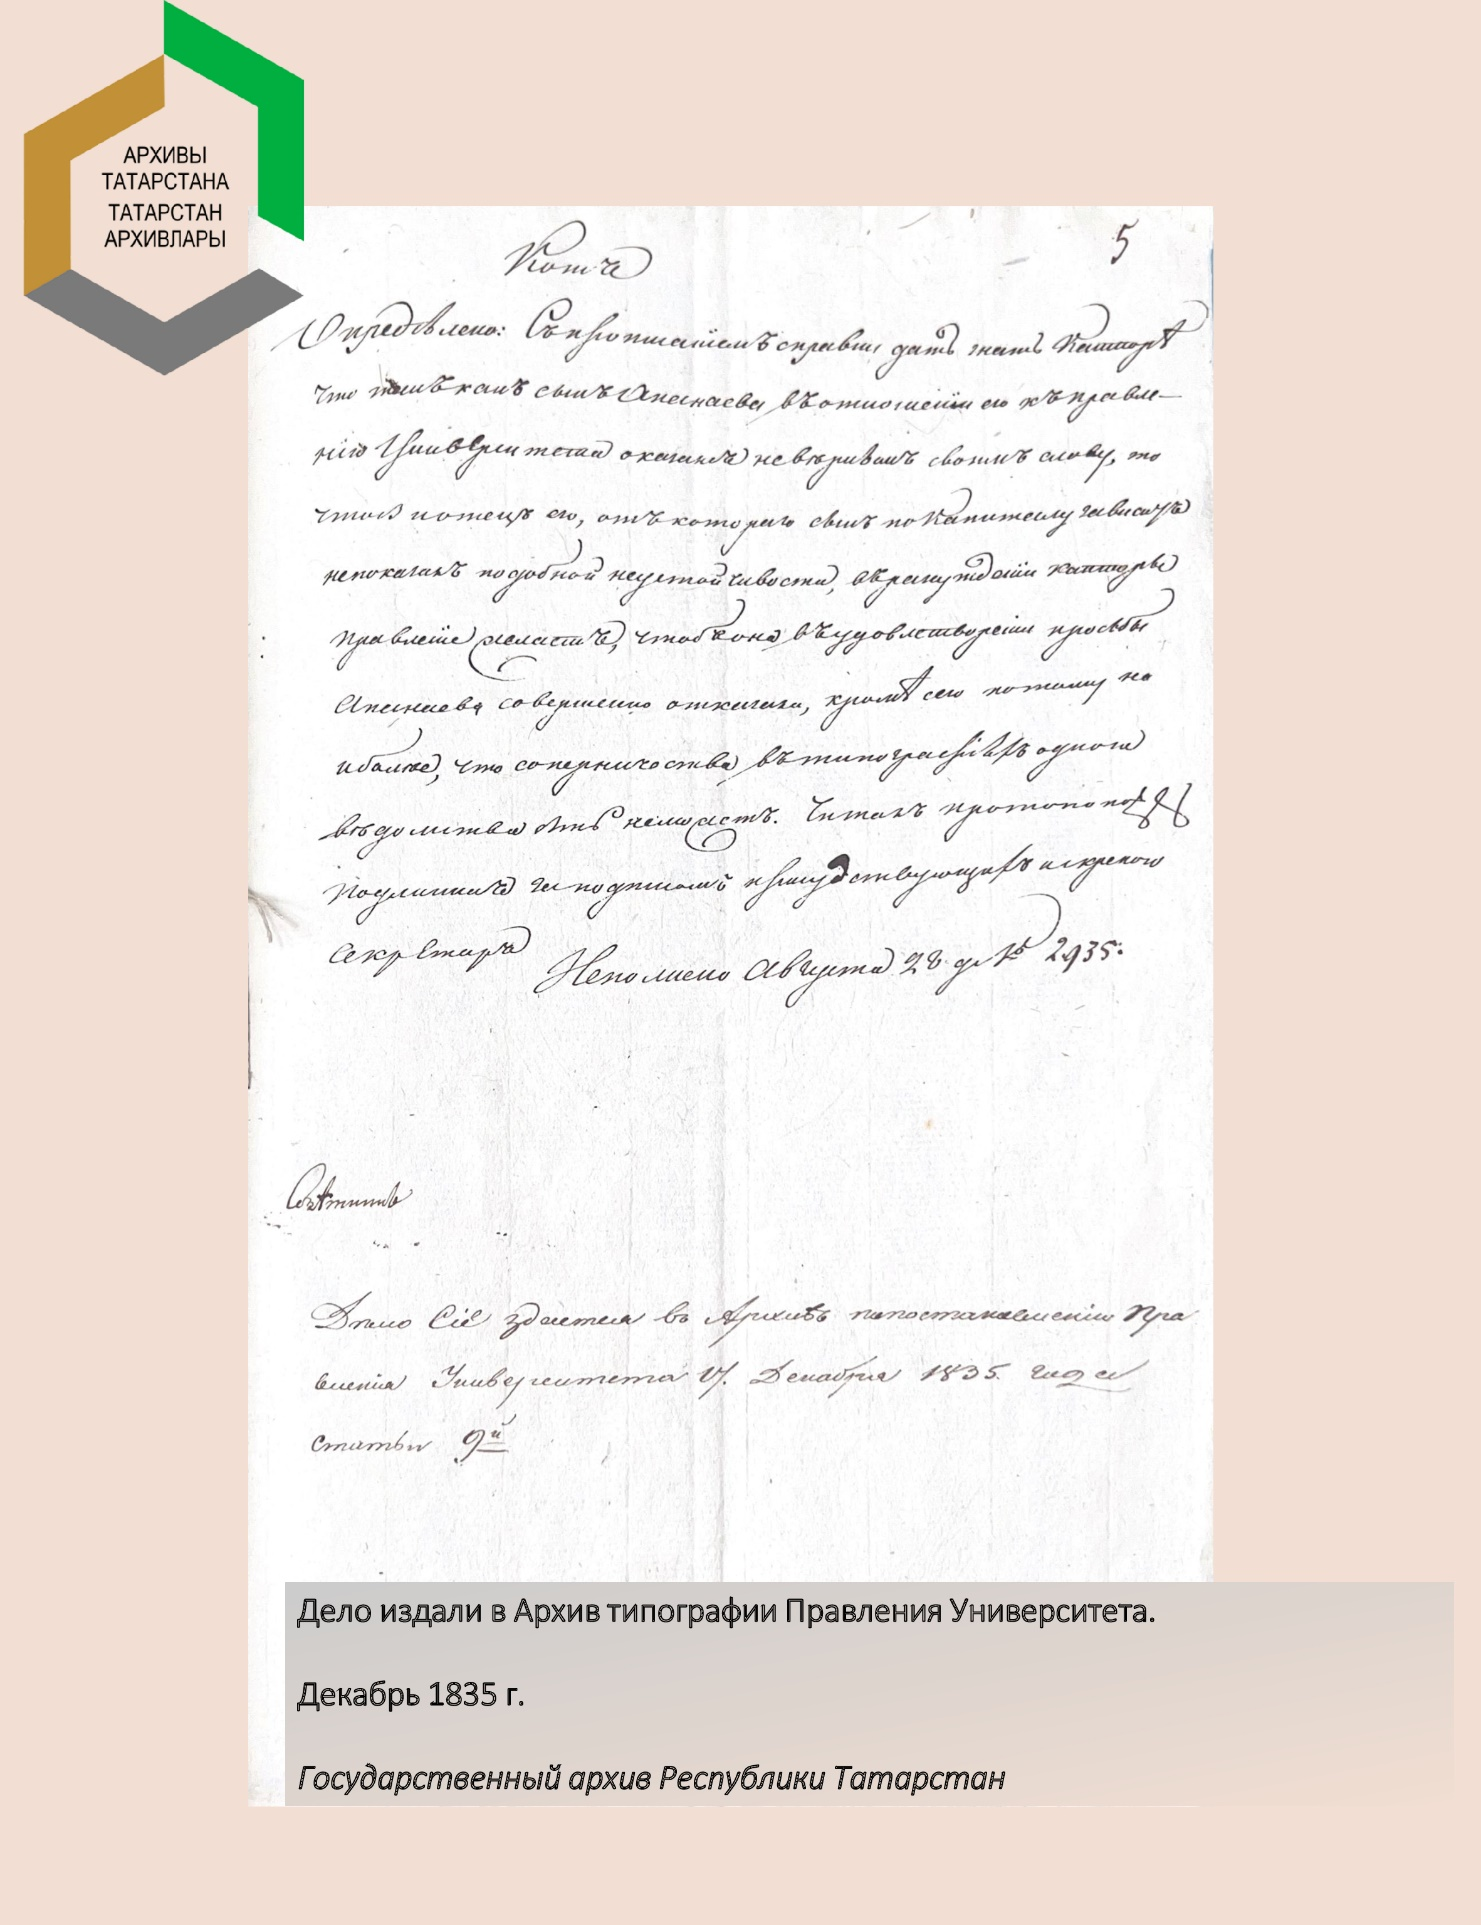 АРХИВЫ
ТАТАРСТАНА
ТАТАРСТАН
АРХИВЛАРЫ
5
Копія
Опредѣлено: Съ прописаніемъ справки дать знать Канторѣ
что какъ сынъ Апанаева въ отношеніи его къ правле-
нію Университета оказался невѣрнымъ своему слову, то
чтоб и отецъ его, отъ котораго сынъ по Капиталу зависитъ
непоказалъ подобной неустойчивости, въ разсужденіи канторы
правленіе желаетъ, чтобъ она въ удовлетвореніи прозьбы
Апанаева совершенно отказала, кромѣ сего потому но
и болѣе, что соперничества въ типографіяхъ одного
вѣдомства быть неможетъ. Читалъ протопопъ
Подлинная за подписомъ присудствующихъ и скрепою
секретаря
Исполнено Августа 28 д. № 2935.
Дѣло сіе здается въ Архивъ попостановленію Пра
вленія Университета 17. Декабря 1835. года
статьи 9й
Дело издали в Архив типографии Правления Университета.
Декабрь 1835 г.
Государственный архив Республики Татарстан